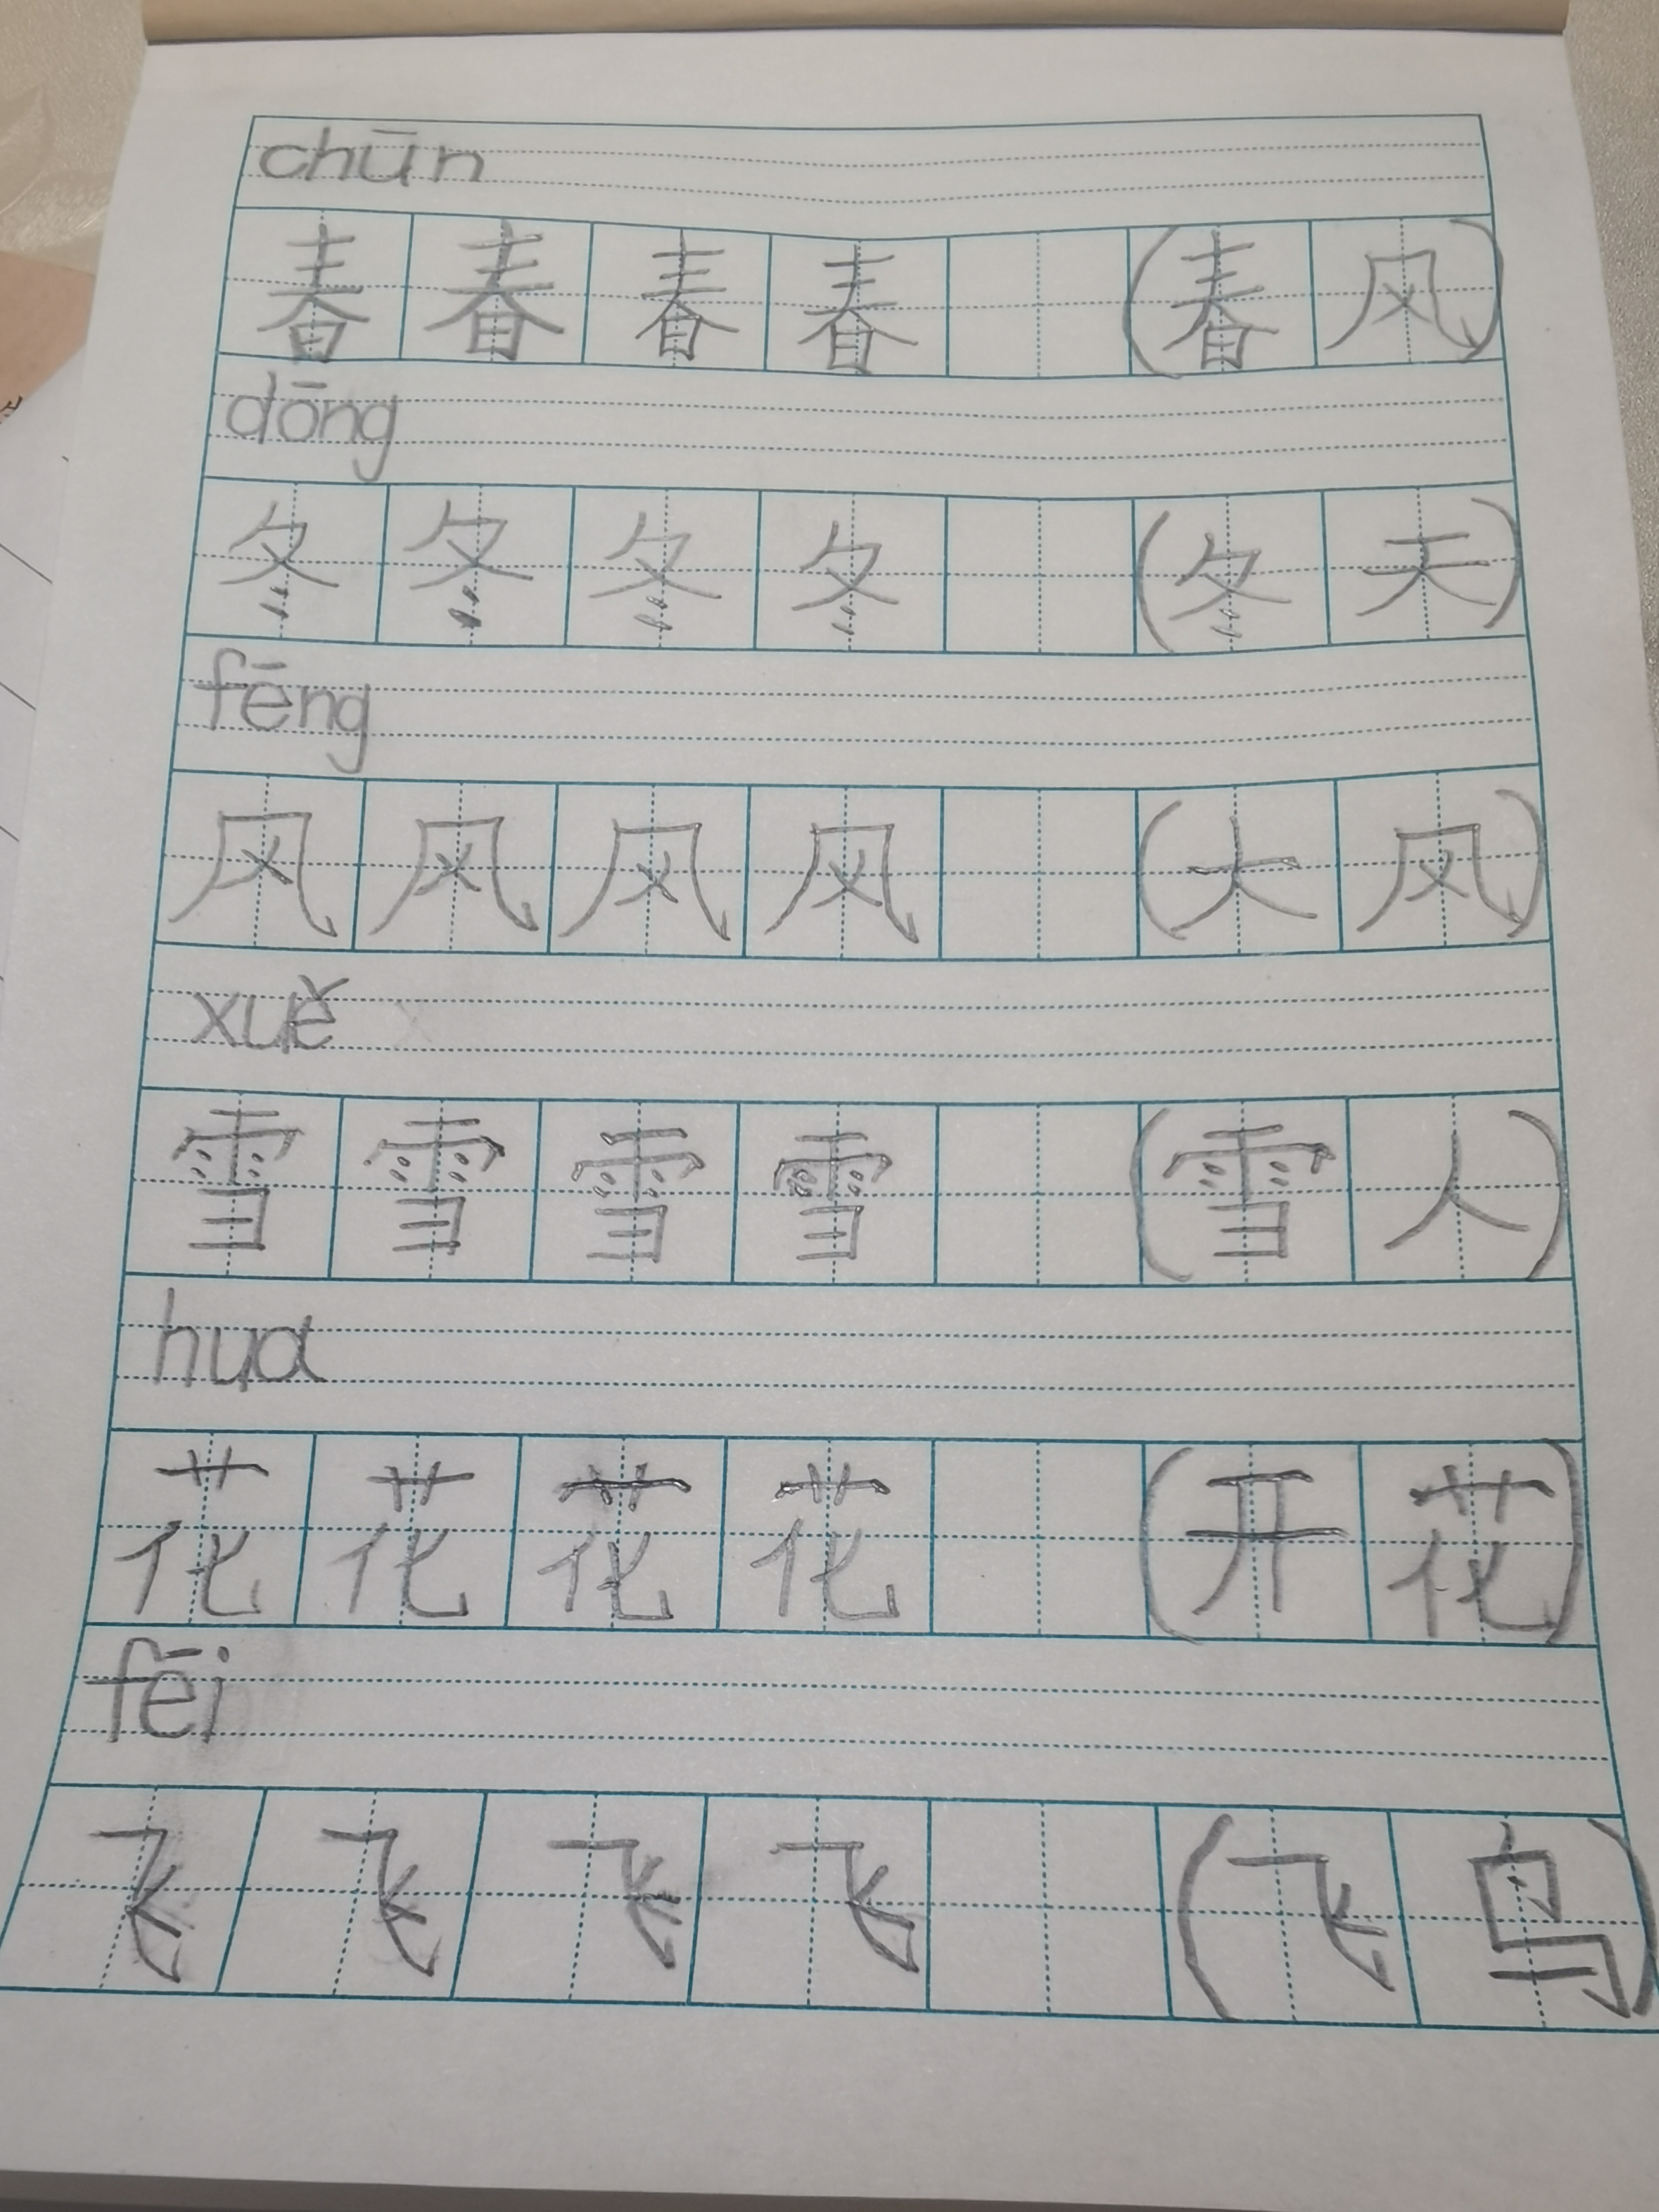 chūn
春 春 春 春 (春 风)
dōng
冬 冬 冬 冬 (冬 天)
fēng
风 风 风 风 (大 风)
xuě
雪 雪 雪 雪 (雪 人)
hua
花 花 花 花 (开 花)
fēi
飞 飞 飞 飞 (飞 鸟)